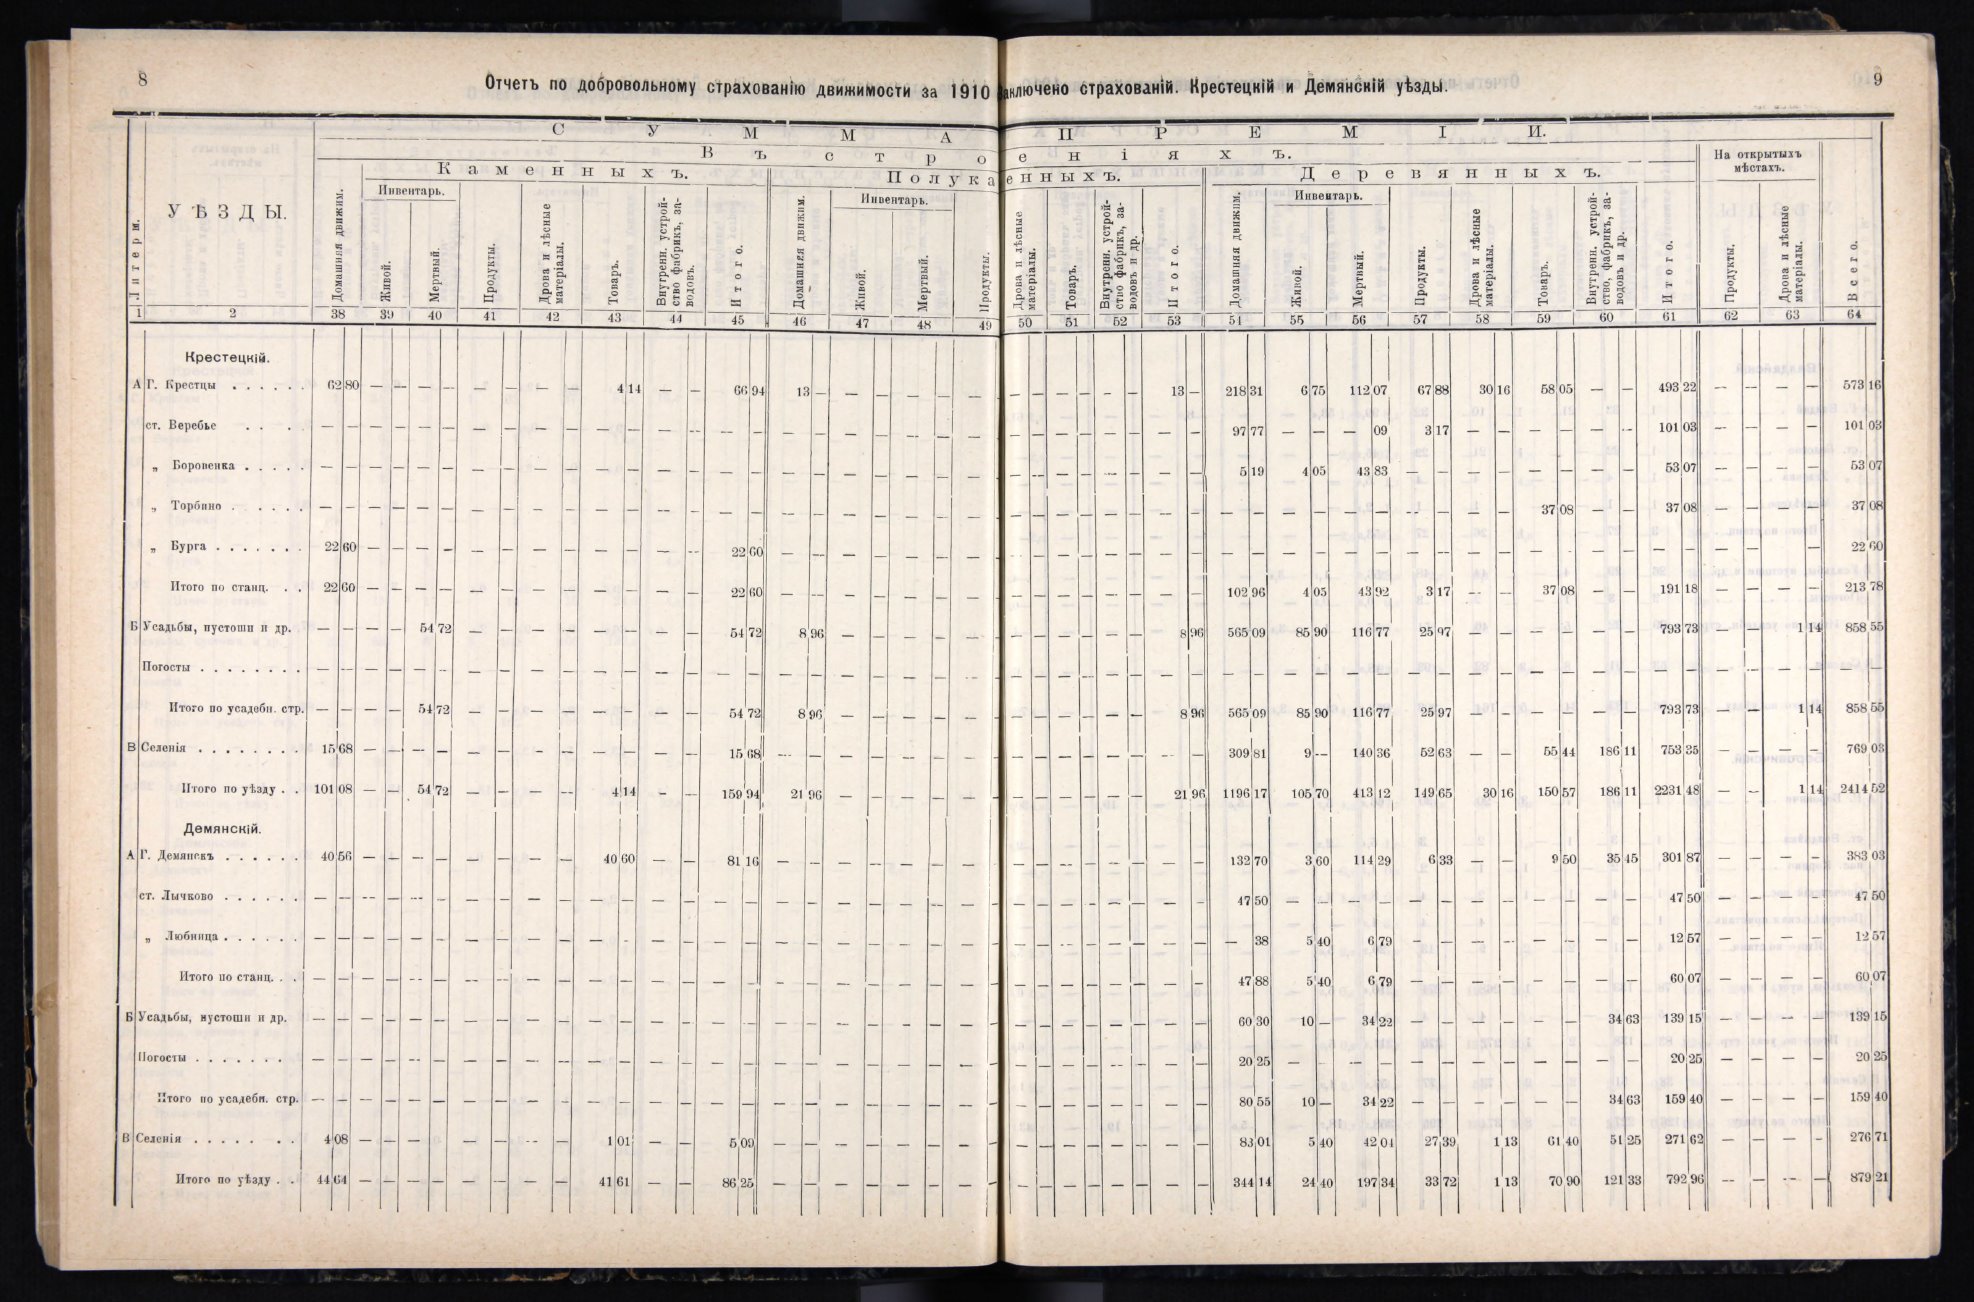 8
Отчетъ по добровольному страхованію движимости за 1910
аключено страхованій. Крестецкій и Демянскій уѣзды.
9
СУММА ПРЕМІИ.
Въ строеніяхъ.
На открытыхъ мѣстахъ.
Каменныхъ.
Полука енныхъ.
Деревянныхъ.
Литеры.
УѢЗДЫ.
Домашняя движим.
Инвентарь.
Живой.
Мертвый.
Продукты.
Дрова и лѣсные матеріалы.
Товаръ.
Внутренн. устройство фабрикъ, заводовъ.
Итого.
Домашняя движим.
Инвентарь.
Живой.
Мертвый.
Продукты.
Дрова и лѣсные матеріалы.
Товаръ.
Внутренн. устройство фабрикъ, заводовъ и др.
Итого.
Домашняя движим.
Инвентарь.
Живой.
Мертвый.
Продукты.
Дрова и лѣсные матеріалы.
Товаръ.
Внутренн. устройство, фабрикъ, заводовъ и др.
Итого.
Продукты.
Дрова и лѣсные матеріалы.
Всего.
1 2 38 39 40 41 42 43 44 45 46 47 48 49 50 51 52 53 54 55 56 57 58 59 60 61 62 63 64
Крестецкій.
А Г. Крестцы . . . . . . 62 80 — — — — — — — — 4 14 — — 66 94 13 — — — — — — — — — — — — — 13 — 218 31 6 75 112 07 67 88 30 16 58 05 — — 493 22 — — — — 573 16
ст. Веребье . . . — — — — — — — — — — — — — — — — — — — — — — — — — — — — — — — — 97 77 — — — 09 3 17 — — — — — — 101 03 — — — — 101 03
„ Боровенка . . . . . — — — — — — — — — — — — — — — — — — — — — — — — — — — — — — — — 5 19 4 05 43 83 — — — — — — — — 53 07 — — — — 53 07
„ Торбино . . . . . — — — — — — — — — — — — — — — — — — — — — — — — — — — — — — — — — — — — — — — — — — 37 08 — — 37 08 — — — — 37 08
„ Бурга . . . . . . . 22 60 — — — — — — — — — — — — 22 60 — — — — — — — — — — — — — — — — — — — — — — — — — — — — — — — — — — — — 22 60
Итого по станц. . . 22 60 — — — — — — — — — — — — 22 60 — — — — — — — — — — — — — — — — 102 96 4 05 43 92 3 17 — — 37 08 — — 191 18 — — — — 213 78
Б Усадьбы, пустоши и др. — — — — 54 72 — — — — — — — — 54 72 8 96 — — — — — — — — — — — — 8 96 565 09 85 90 116 77 25 97 — — — — — — 793 73 — — 1 14 858 55
Погосты . . . . . . . . — — — — — — — — — — — — — — — — — — — — — — — — — — — — — — — — — — — — — — — — — — — — — — — — — — — — — —
Итого по усадебн. стр. — — — — 54 72 — — — — — — — — 54 72 8 96 — — — — — — — — — — — — 8 96 565 09 85 90 116 77 25 97 — — — — — — 793 73 — — 1 14 858 55
В Селенія . . . . . . . . 15 68 — — — — — — — — — — — — 15 68 — — — — — — — — — — — — — — — — 309 81 9 — 140 36 52 63 — — 55 44 186 11 753 35 — — — — 769 03
Итого по уѣзду . . 101 08 — — 54 72 — — — — 4 14 — — 159 94 21 96 — — — — — — — — — — — — 21 96 1196 17 105 70 413 12 149 65 30 16 150 57 186 11 2231 48 — — 1 14 2414 52
Демянскій.
А Г. Демянскъ . . . . . . 40 56 — — — — — — — — 40 60 — — 81 16 — — — — — — — — — — — — — — — — 132 70 3 60 114 29 6 33 — — 9 50 35 45 301 87 — — — — 383 03
ст. Лычково . . . . . . — — — — — — — — — — — — — — — — — — — — — — — — — — — — — — — — 47 50 — — — — — — — — — — — — 47 50 — — — — 47 50
„ Любница . . . . . . — — — — — — — — — — — — — — — — — — — — — — — — — — — — — — — — — 38 5 40 6 79 — — — — — — — — 12 57 — — — — 12 57
Итого по станц. . . — — — — — — — — — — — — — — — — — — — — — — — — — — — — — — — — 47 88 5 40 6 79 — — — — — — — — 60 07 — — — — 60 07
Б Усадьбы, пустоши и др. — — — — — — — — — — — — — — — — — — — — — — — — — — — — — — — — 60 30 10 — 34 22 — — — — — — 34 63 139 15 — — — — 139 15
Погосты . . . . . . . — — — — — — — — — — — — — — — — — — — — — — — — — — — — — — — — 20 25 — — — — — — — — — — — — 20 25 — — — — 20 25
Итого по усадебн. стр. — — — — — — — — — — — — — — — — — — — — — — — — — — — — — — — — 80 55 10 — 34 22 — — — — — — 34 63 159 40 — — — — 159 40
В Селенія . . . . . . . 4 08 — — — — — — — — 1 01 — — 5 09 — — — — — — — — — — — — — — — — 83 01 5 40 42 04 27 39 1 13 61 40 51 25 271 62 — — — — 276 71
Итого по уѣзду . . 44 64 — — — — — — — — 41 61 — — 86 25 — — — — — — — — — — — — — — — — 344 14 24 40 197 34 33 72 1 13 70 90 121 33 792 96 — — — — 879 21